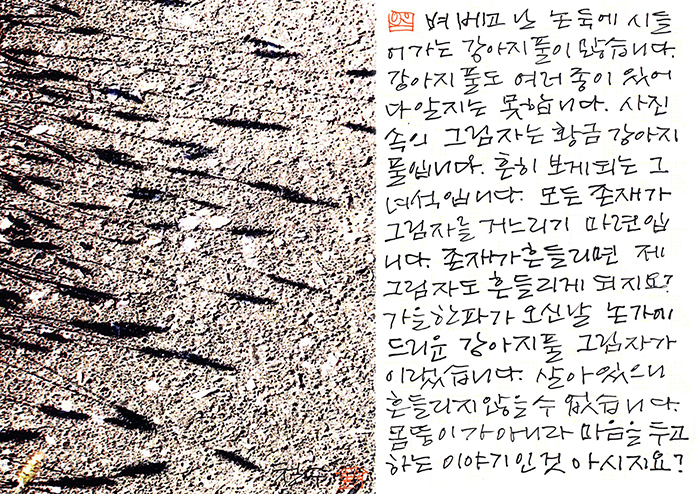 벼 베고 난 논둑에 시들
어가는 강아지풀이 많습니다.
강아지풀도 여러 종이 있어
다 알지는 못합니다. 사진
속의 그림자는 황금 강아지
풀입니다. 흔히 보게되는 그
녀석입니다. 모든 존재가
그림자를 거느리기 마련입
니다. 존재가 흔들리면 제
그림자도 흔들리게 되지요?
가을한파가 오신날 논가에
드리운 강아지풀 그림자가
이랬습니다. 살아 있으니
흔들리지 않을 수 없습니다.
몸뚱이가 아니라 마음을 두고
하는 이야기인 것 아시지요?